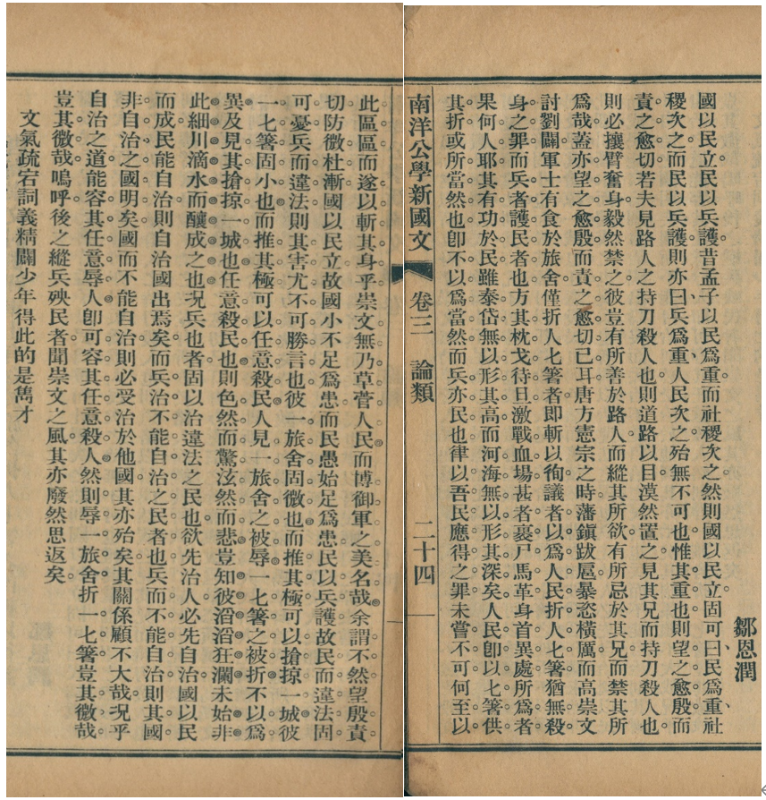 鄒恩潤
國以民立民以兵護昔孟子以民爲重而社稷次之然則國以民立固可曰民爲重社
稷次之而民以兵護則亦曰兵爲重人民次之殆無不可也惟其重也則望之愈殷而
責之愈切若夫見路人之持刀殺人也則道路以目漠然置之見其兄而持刀殺人也
則必攘臂奮身毅然禁之彼豈有所善於路人而縱其所欲有所忌於其兄而禁其所
爲哉蓋亦望之愈殷而責之愈切已耳唐方憲宗之時藩鎭跋扈暴恣橫厲而高崇文
討劉闢軍士有食於旅舍僅折人匕箸者即斬以徇議者以爲人民折人匕箸猶無殺
身之罪而兵者護民者也方其枕戈待旦激戰血場甚者裹尸馬革身首異處所爲者
果何人耶其有功於民雖泰岱無以形其高而河海無以形其深矣人民卽以匕箸供
其折或所當然也卽不以爲當然而兵亦民也律以吾民應得之罪未嘗不可何至以
南洋公學新國文 卷三 論類 二十四
此區區而遂以斬其身乎崇文無乃草菅人民而博御軍之美名哉余謂不然望殷責
切防微杜漸國以民立故國小不足爲患而民愚始足爲患民以兵護故民而違法固
可憂兵而違法則其害尤不可勝言也彼一旅舍固微也而推其極可以搶掠一城彼
一匕箸固小也而推其極可以任意殺民人見一旅舍之被辱一匕箸之被折不以爲
異及見其搶掠一城也任意殺民也則色然而驚泫然而悲豈知彼滔滔狂瀾未始非
此細川滴水而釀成之也况兵也者固以治違法之民也欲先治人必先自治國以民
而成民能自治則自治國出焉矣而兵治不能自治之民者也兵而不能自治則其國
非自治之國明矣國而不能自治則必受治於他國其亦殆矣其關係顧不大哉况乎
自治之道能容其任意辱人卽可容其任意殺人然則辱一旅舍折一匕箸豈其微哉
豈其微哉嗚呼後之縱兵殃民者聞崇文之風其亦廢然思返矣
文氣疏宕詞義精闢少年得此的是雋才